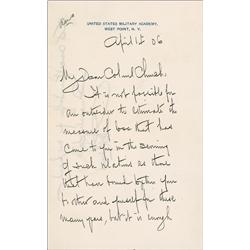 UNITED STATES MILITARY ACADEMY,
WEST POINT, N. Y.
April 1st 06
My Dear Colonel Church,
It is not possible for
an outsider to estimate the
measure of loss that has
come to you in the severing
of such relations as those
that have bound you
to and for these
many years, but it is enough